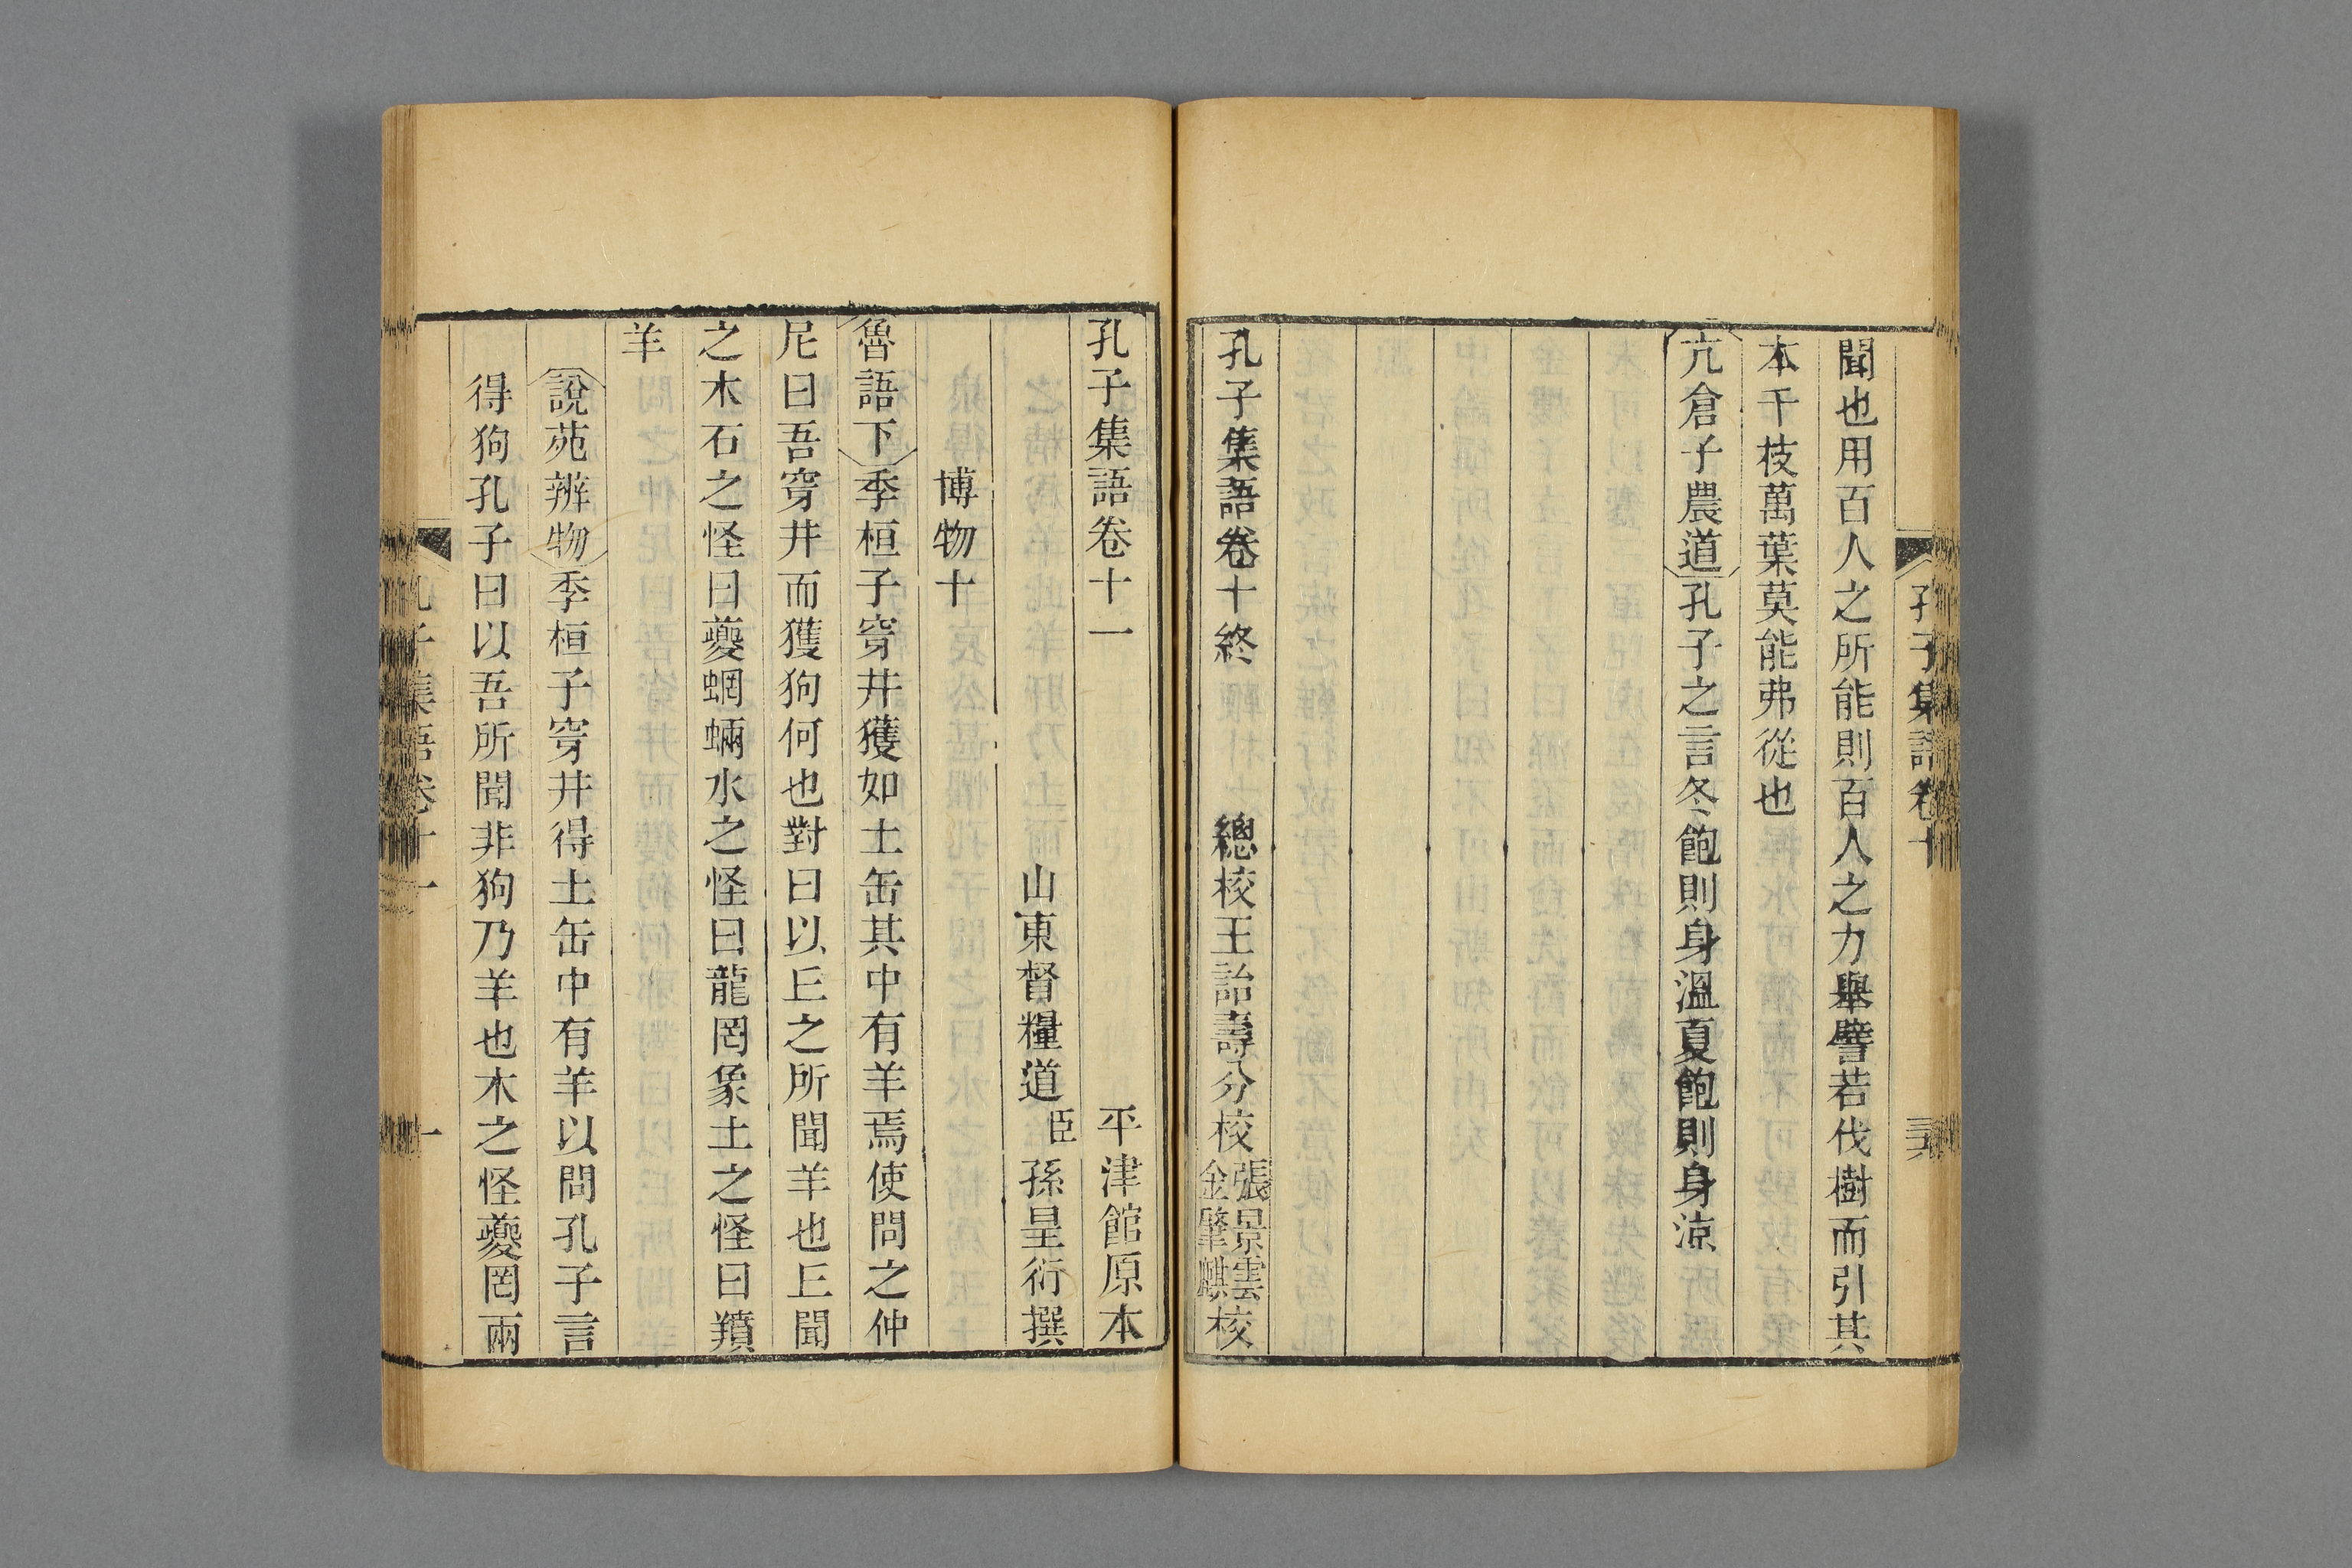 孔子集語卷十
三六
聞也用百人之所能則百人之力舉譬若伐樹而引其
本千枝萬葉莫能弗從也
亢倉子農道孔子之言冬飽則身溫夏飽則身涼
孔子集語卷十終
總校王詒壽分校張景雲金肇麒校
孔子集語卷十一
平津館原本
山東督糧道臣孫星衍撰
博物十
魯語下季桓子穿井獲如土缶其中有羊焉使問之仲
尼曰吾穿井而獲狗何也對曰以丘之所聞羊也丘聞
之木石之怪曰夔蝄蜽水之怪曰龍罔象土之怪曰羵
羊
說苑辨物季桓子穿井得土缶中有羊以問孔子言
得狗孔子曰以吾所聞非狗乃羊也木之怪夔罔兩
孔子集語卷十一
一